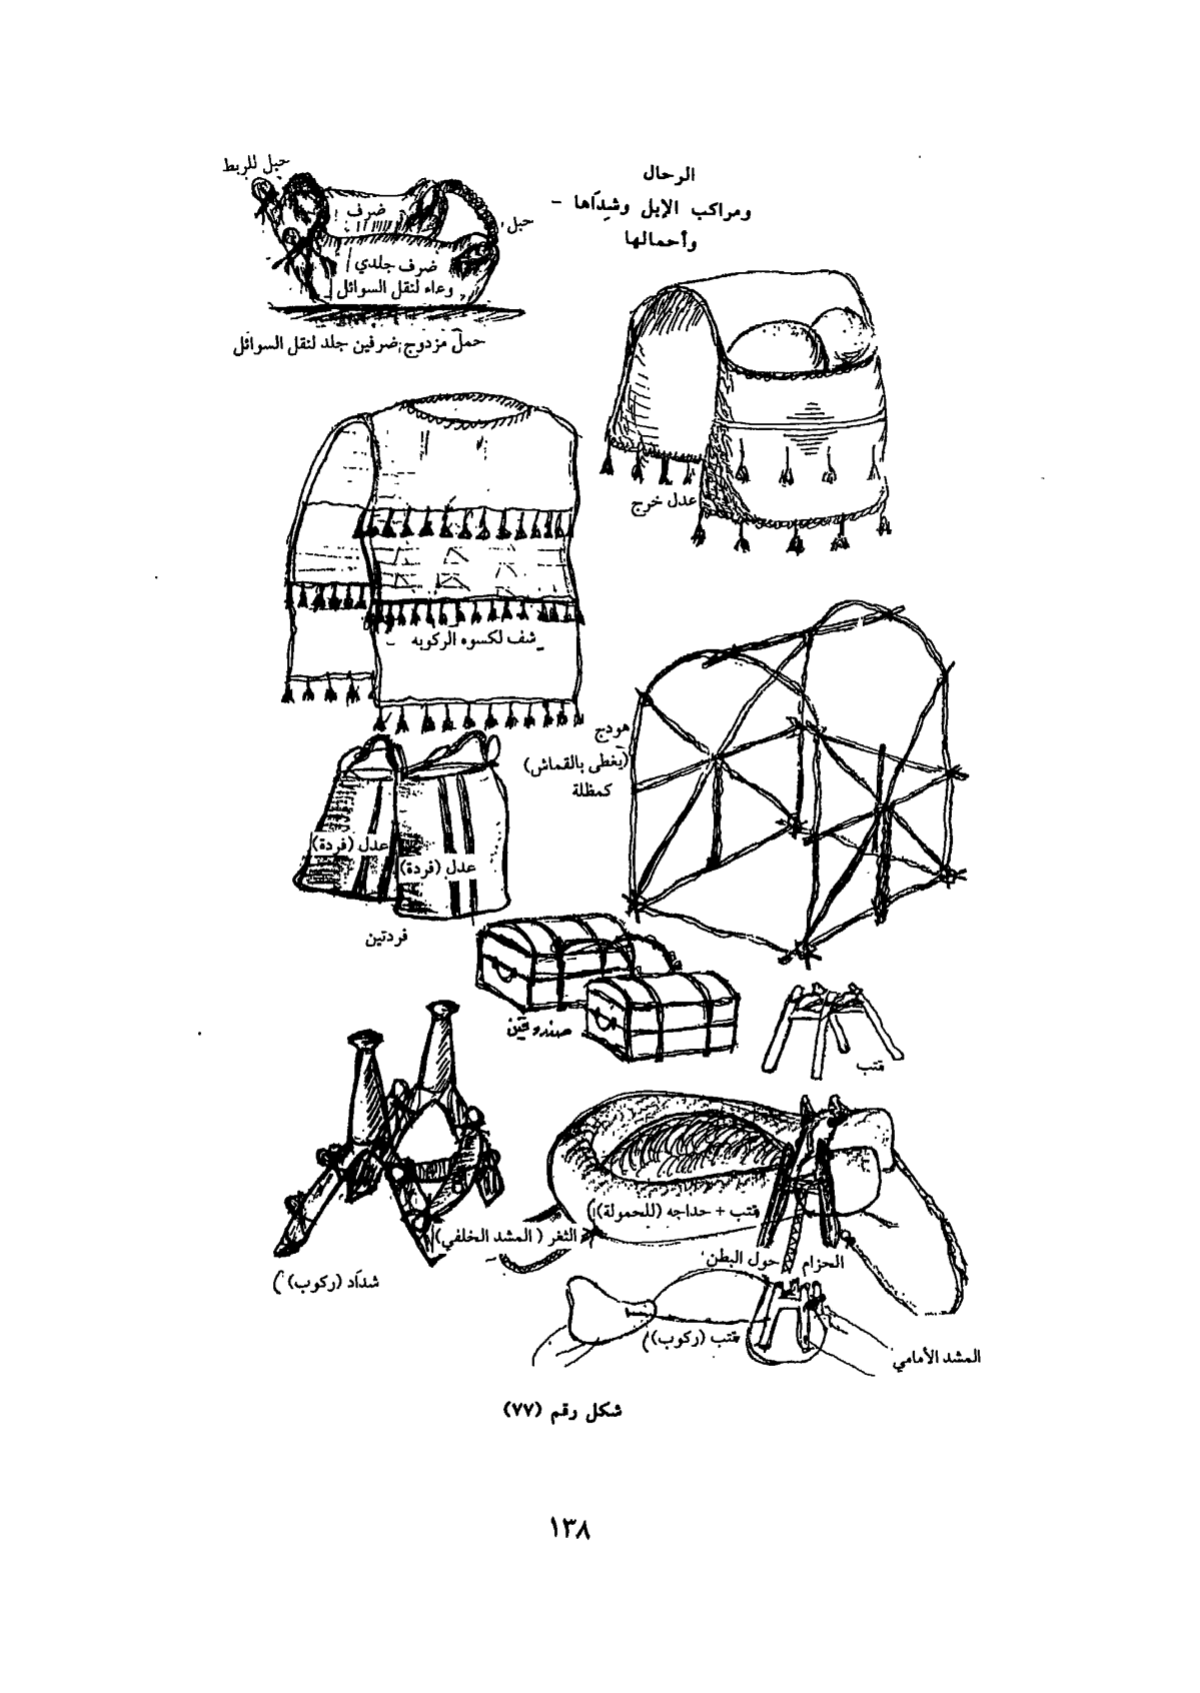 الرحال
ومراكب الإبل وشدِّاها –
وأحمالها
حبل للربط
ضرف
حبل
ضرف جلدي
وعاء لنقل السوائل
حملّ مزدوج ضرفين جلد لنقل السوائل
عدل خرج
شف لكسوه الركوبه
هودج
(يغطى بالقماش)
كمظلة
عدل (فردة)
عدل (فردة)
فردتين
صندوقين
قتب
قتب + حداجه (للحمولة)
الثفر (المشد الخلفي)
الحزام حول البطن
شدَاد (ركوب)
قتب (ركوب)
المشد الأمامي
شكل رقم (٧٧)
١٣٨